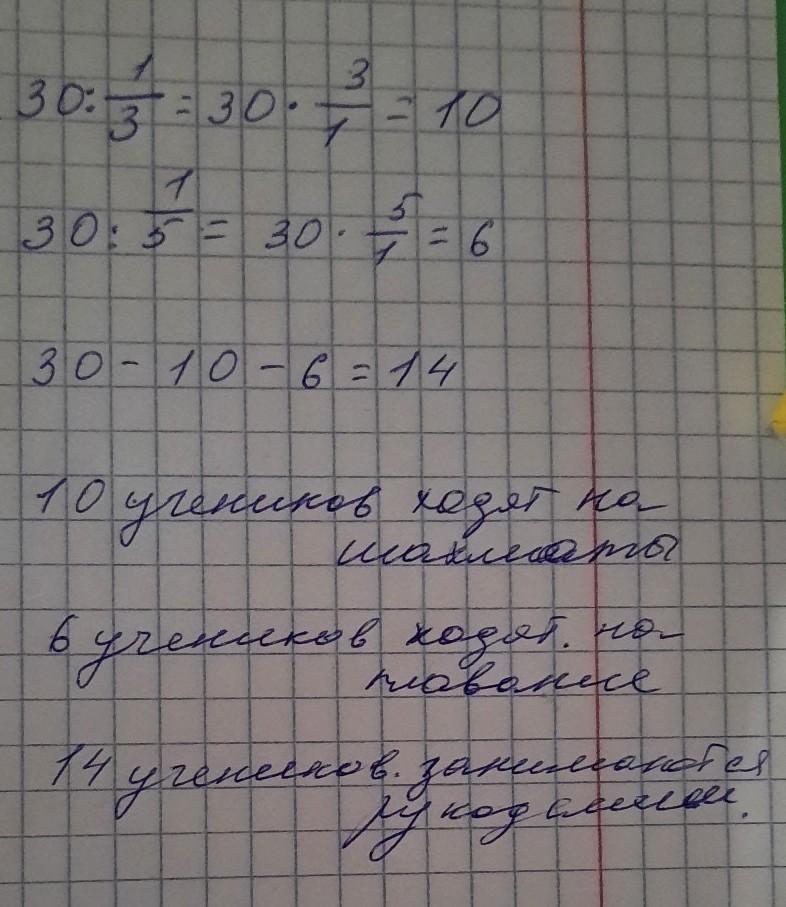 30 : 1/3 = 30 · 3/1 = 10
30 : 1/5 = 30 · 5/1 = 6
30 - 10 - 6 = 14
10 учеников ходят на
шахматы
6 учеников ходят. на
плавание
14 учеников. занимаются
рукоделием.